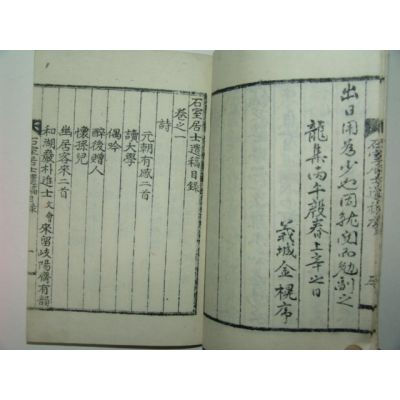 出日用爲少也因就閱而勉副之
龍集丙午春上辛之日
義城金榥序
石室居士遺稿目錄
卷之一
詩
元朝有感二首
讀大學
偶吟
醉後贈人
懷孫兒
幽居客來二首
和湖巖朴進士文會來留岐陽齋有韻
石室居士遺稿目錄